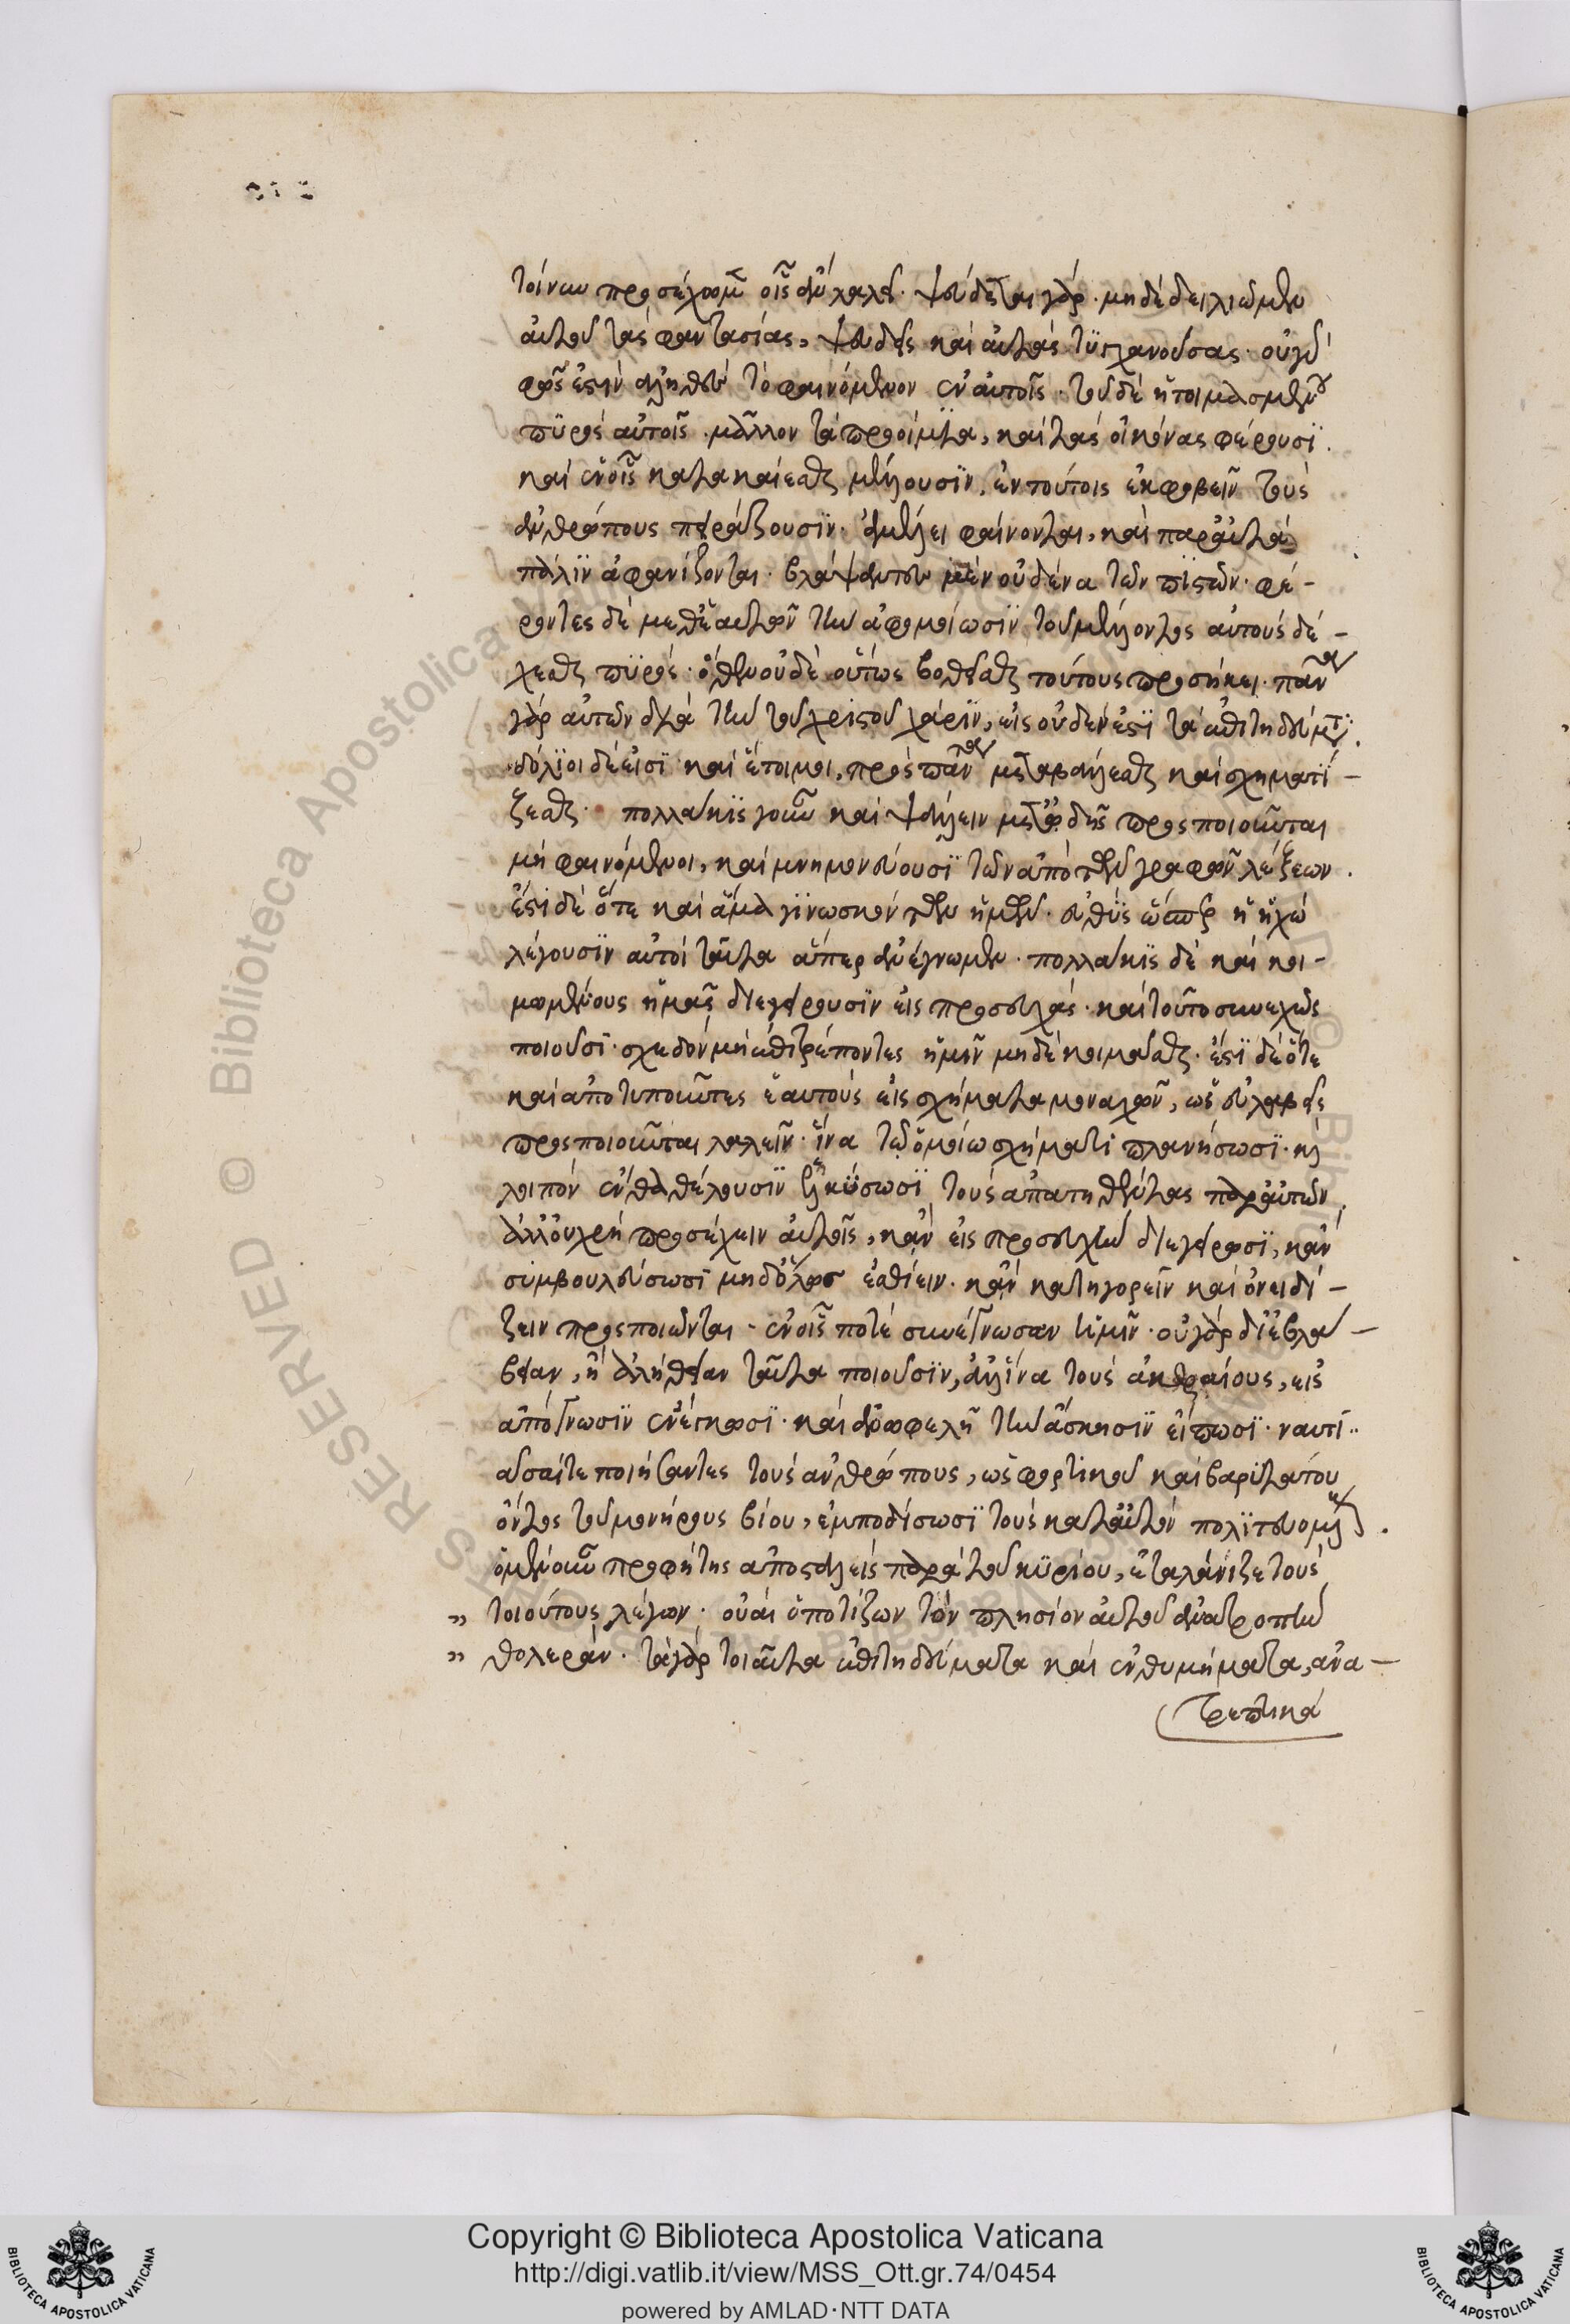 τοίνυν προσέχωμεν οἷς ἂν λαλεῖ· ψεύδεται γάρ· μηδὲ δειλιῶμεν
αὐτοῦ τὰς φαντασίας, ψευδεῖς καὶ αὐτὰς τϋγχανούσας· οὐ γὰρ
φῶς ἐστὶν ἀληθὲς τὸ φαινόμενον ἐν αὐτοῖς· τοῦ δὲ ἡτοιμασμένου
πϋρὸς αὐτοῖς· μᾶλλον τὰ προοίμϊα, καὶ τὰς εἰκόνας φέρουσϊ.
καὶ ἐν οἷς κατακαίεσθαι μέλλουσϊν, ἐν τούτοις ἐκφοβεῖν τοὺς
ἀνθρώπους πειράζουσϊν· ἀμέλει φαίνονται, καὶ παραυτὰ
πάλϊν ἀφανίζονται· βλάψαντες μὲν οὐδένα τῶν πϊστῶν· φέ-
ροντες δὲ μεθ' ἑαυτῶν τὴν ἀφομοίωσϊν τοῦ μέλλοντος αὐτοὺς δέ-
χεσθαι πϋρός· ὅθεν οὐδὲ οὕτως φοβεῖσθαι τούτους προσήκει· πάντα
γὰρ αὐτῶν διὰ τὴν τοῦ χριστοῦ χάρϊν, εἰς οὐδέν ἐστϊ τὰ ἐπιτηδεύματα.
δόλϊοι δέ εἰσϊ καὶ ἕτοιμοι, πρὸς πάντα μεταβάλλεσθαι καὶ σχηματΐ-
ζεσθαι· πολλάκϊς γοῦν καὶ ψάλλειν μετ' ᾠδῆς προσποιοῦνται
μὴ φαινόμενοι, καὶ μνημονεύουσϊ τῶν ἀπὸ τῶν γραφῶν λέξεων.
ἔστι δὲ ὅτε καὶ ἅμα γϊνωσκόντων ἡμῶν· εὐθὺς ὥσπερ ἢ ἠχὼ
λέγουσϊν αὐτοὶ ταῦτα ἅπερ ἀνέγνωμεν· πολλάκϊς δὲ καὶ κοι-
μωμένους ἡμᾶς διεγείρουσϊν εἰς προσευχάς· καὶ τοῦτο συνεχῶς
ποιοῦσϊ· σχεδὸν μὴ ἐπιτρέποντες ἡμῖν μηδὲ κοιμᾶσθαι· ἔστϊ δὲ ὅτε
καὶ ἀποτυποῦντες ἑαυτοὺς εἰς σχήματα μοναχῶν, ὡς εὐλαβεῖς
προσποιοῦνται λαλεῖν· ἵνα τῷ ὁμοίω σχήματι πλανήσωσϊ· καὶ
λοιπὸν ἔνθα θέλουσϊν ἑλκύσωσϊ τοὺς ἀπατηθέντας παρ' αὐτῶν.
ἀλλ' οὐ χρὴ προσέχειν αὐτοῖς, κἂν εἰς προσευχὴν διεγείρωσϊ, κἂν
συμβουλεύσωσϊ μηδ' ὅλως ἐσθίειν· κἂν κατηγορεῖν καὶ ὀνειδί-
ζειν προσποιῶνται· ἐν οἷς ποτὲ συνέγνωσαν ἡμῖν· οὐ γὰρ δι' εὐλά-
βειαν, ἢ ἀλήθειαν ταῦτα ποιοῦσϊν, ἀλλ' ἵνα τοὺς ἀκεραίους, εἰς
ἀπόγνωσϊν ἐνέγκωσϊ· καὶ ἀνωφελῆ τὴν ἄσκησϊν εἴπωσϊ· ναυτϊ-
ᾶσαί τε ποιήσαντες τοὺς ἀνθρώπους, ὡς φορτικοῦ καὶ βαρυτάτου
ὄντος τοῦ μονήρους βίου, ἐμποδίσωσϊ τοὺς κατ' αὐτὸν πολϊτευομένους.
ὁ μὲν οὖν προφήτης ἀποσταλεὶς παρὰ τοῦ κϋρίου, ἐταλάνϊζε τοὺς
" τοιούτους λέγων· οὐαὶ ὁ ποτίζων τὸν πλησίον αὐτοῦ ἀνατροπὴν
" θολεράν· τὰ γὰρ τοιαῦτα ἐπιτηδεύματα καὶ ἐνθυμήματα, ἀνα-
τρεπτικὰ
Copyright © Biblioteca Apostolica Vaticana
http://digi.vatlib.it/view/MSS_Ott.gr.74/0454
powered by AMLAD·NTT DATA